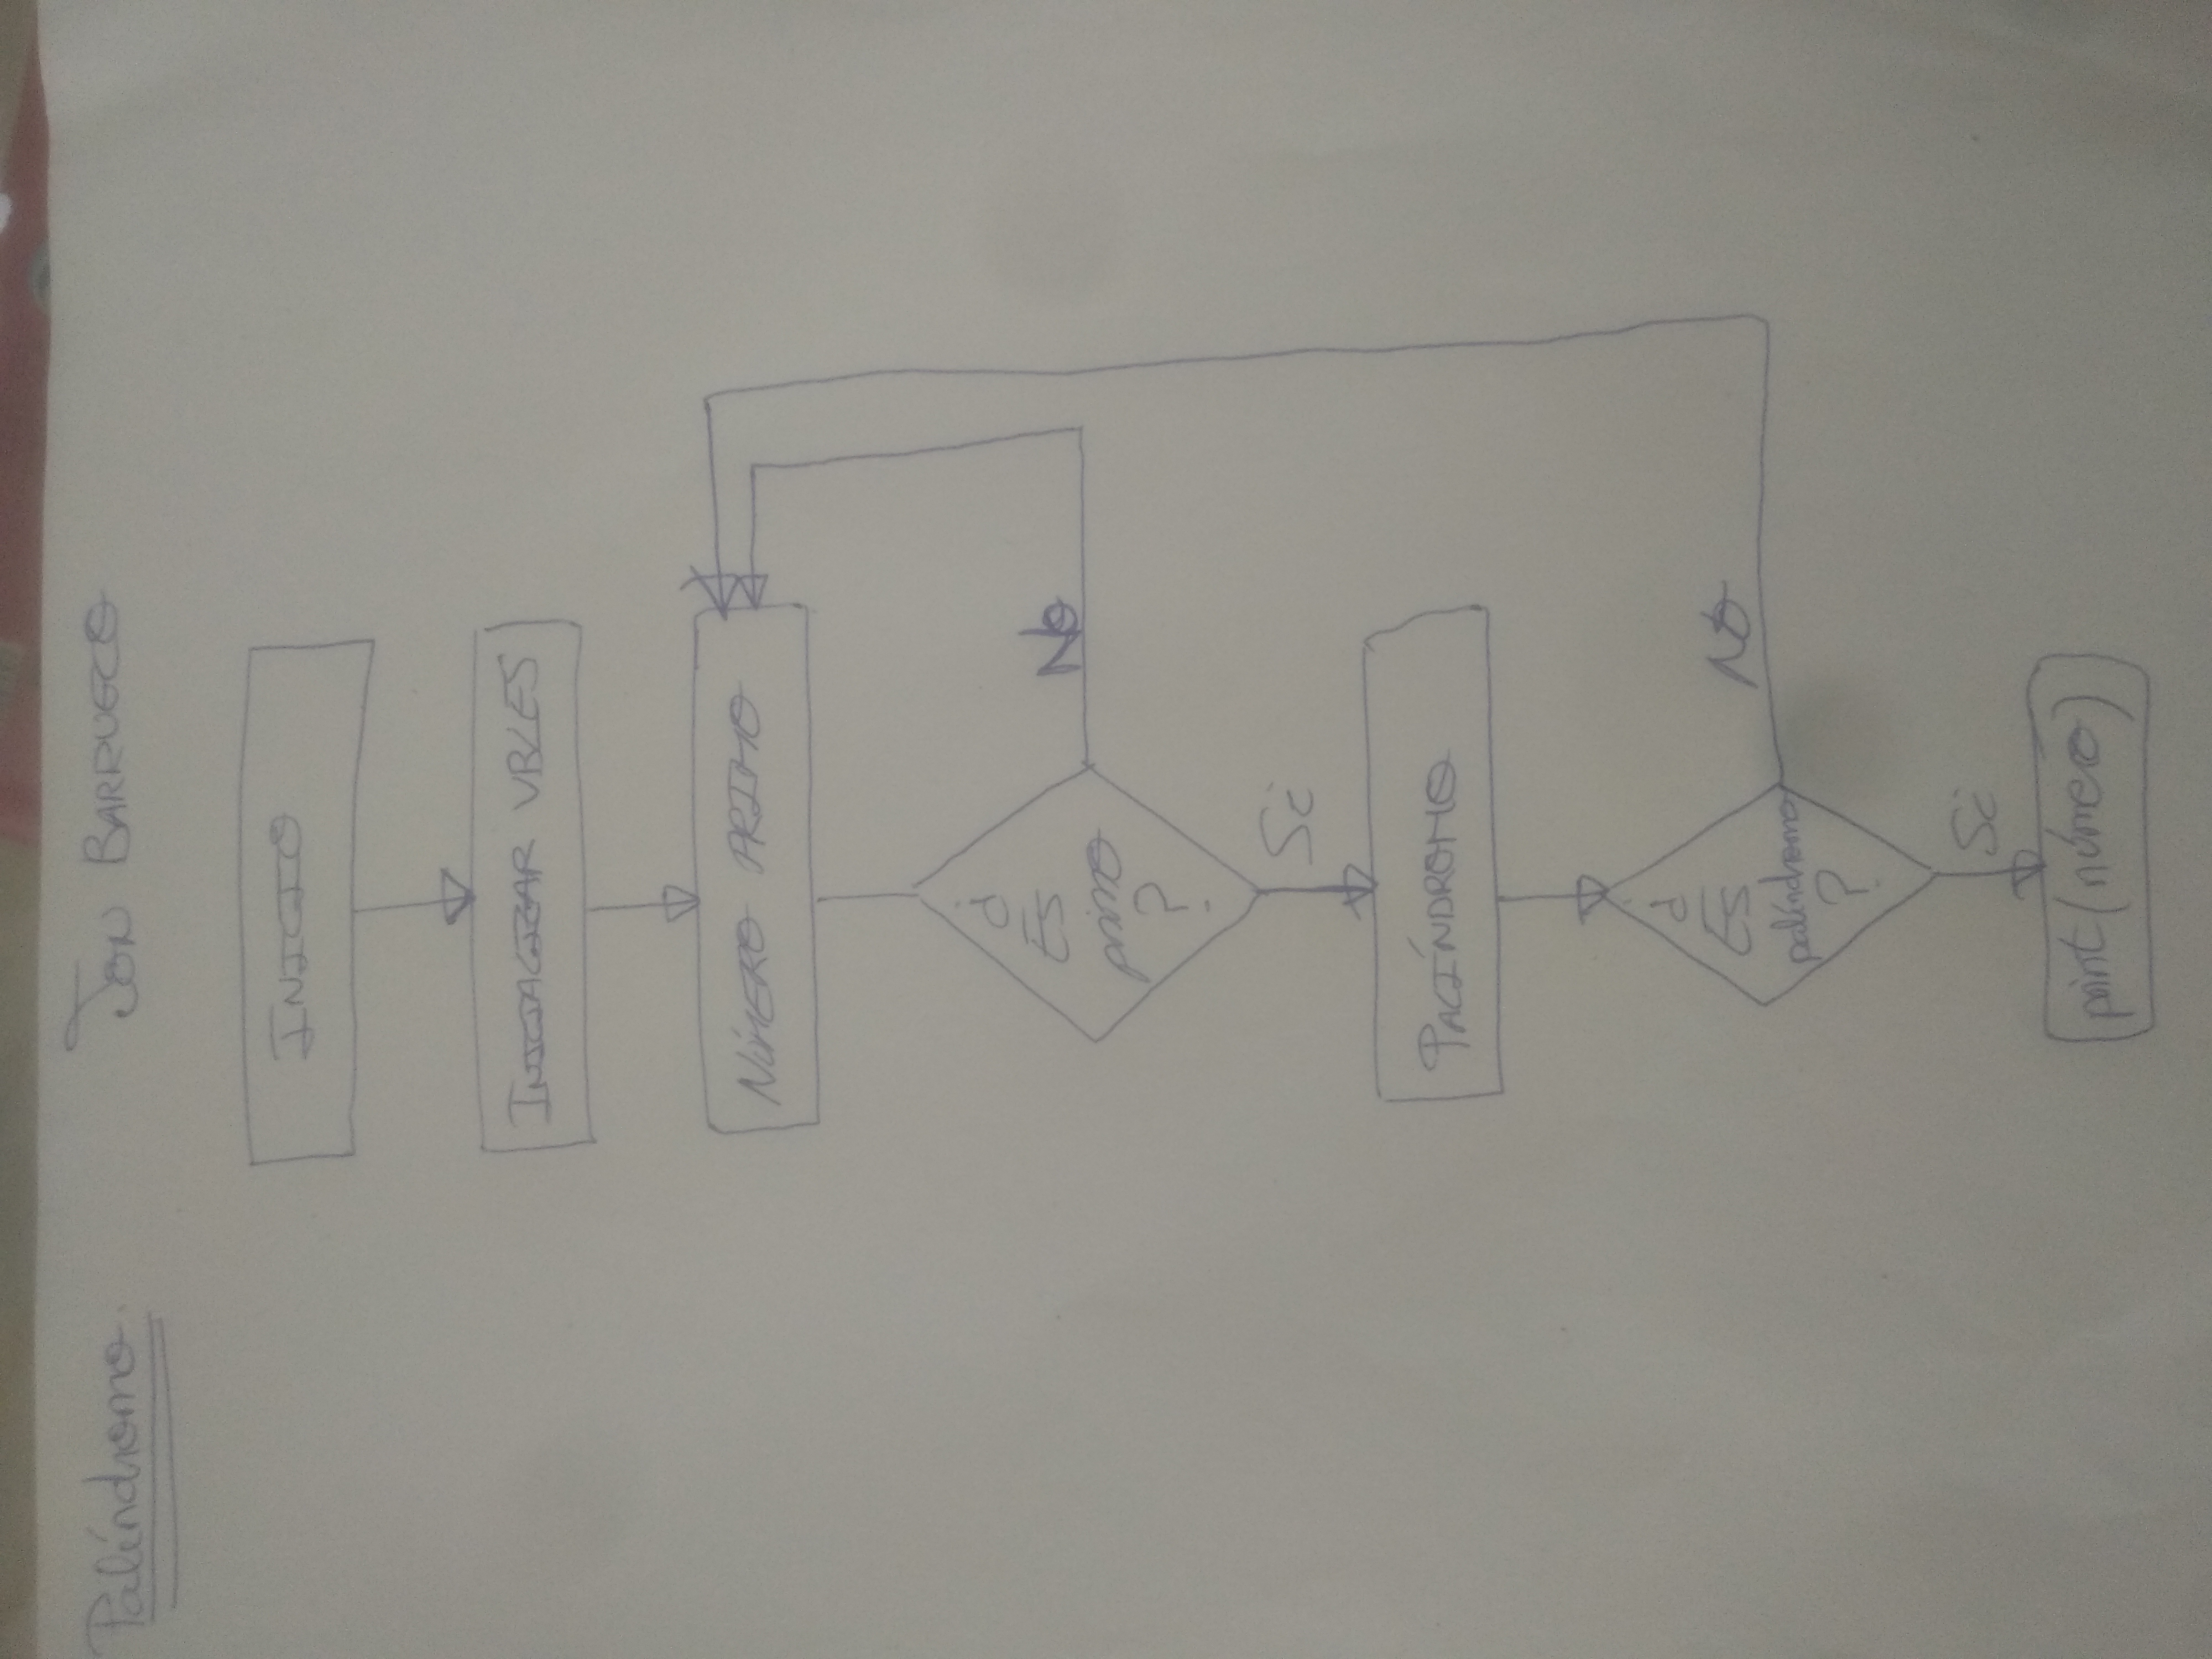 Palíndromo.
JON BARRUECO
INICIO
INICIALIZAR VBLES
NÚMERO PRIMO
¿
ES
primo
?
No
Sí
PALÍNDROMO
¿
ES
palíndromo
?
No
Sí
print(número)